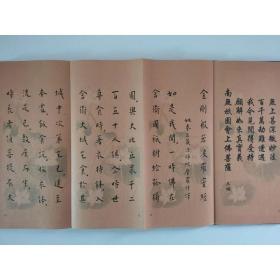 無上甚深微妙法
百千萬劫難遭遇
我今見聞得受持
願解如來真實義
南無祇園會上佛菩薩 三稱
金剛般若波羅蜜經
姚秦三藏法師鳩摩羅什譯
如是我聞一時佛在
舍衛國祇樹給孤獨
園與大比丘眾千二
百五十人俱爾時世
尊食時著衣持鉢入
舍衛大城乞食於其
城中次第乞已還至
本處飯食訖收衣鉢
洗足已敷座而坐
時長老須菩提在大